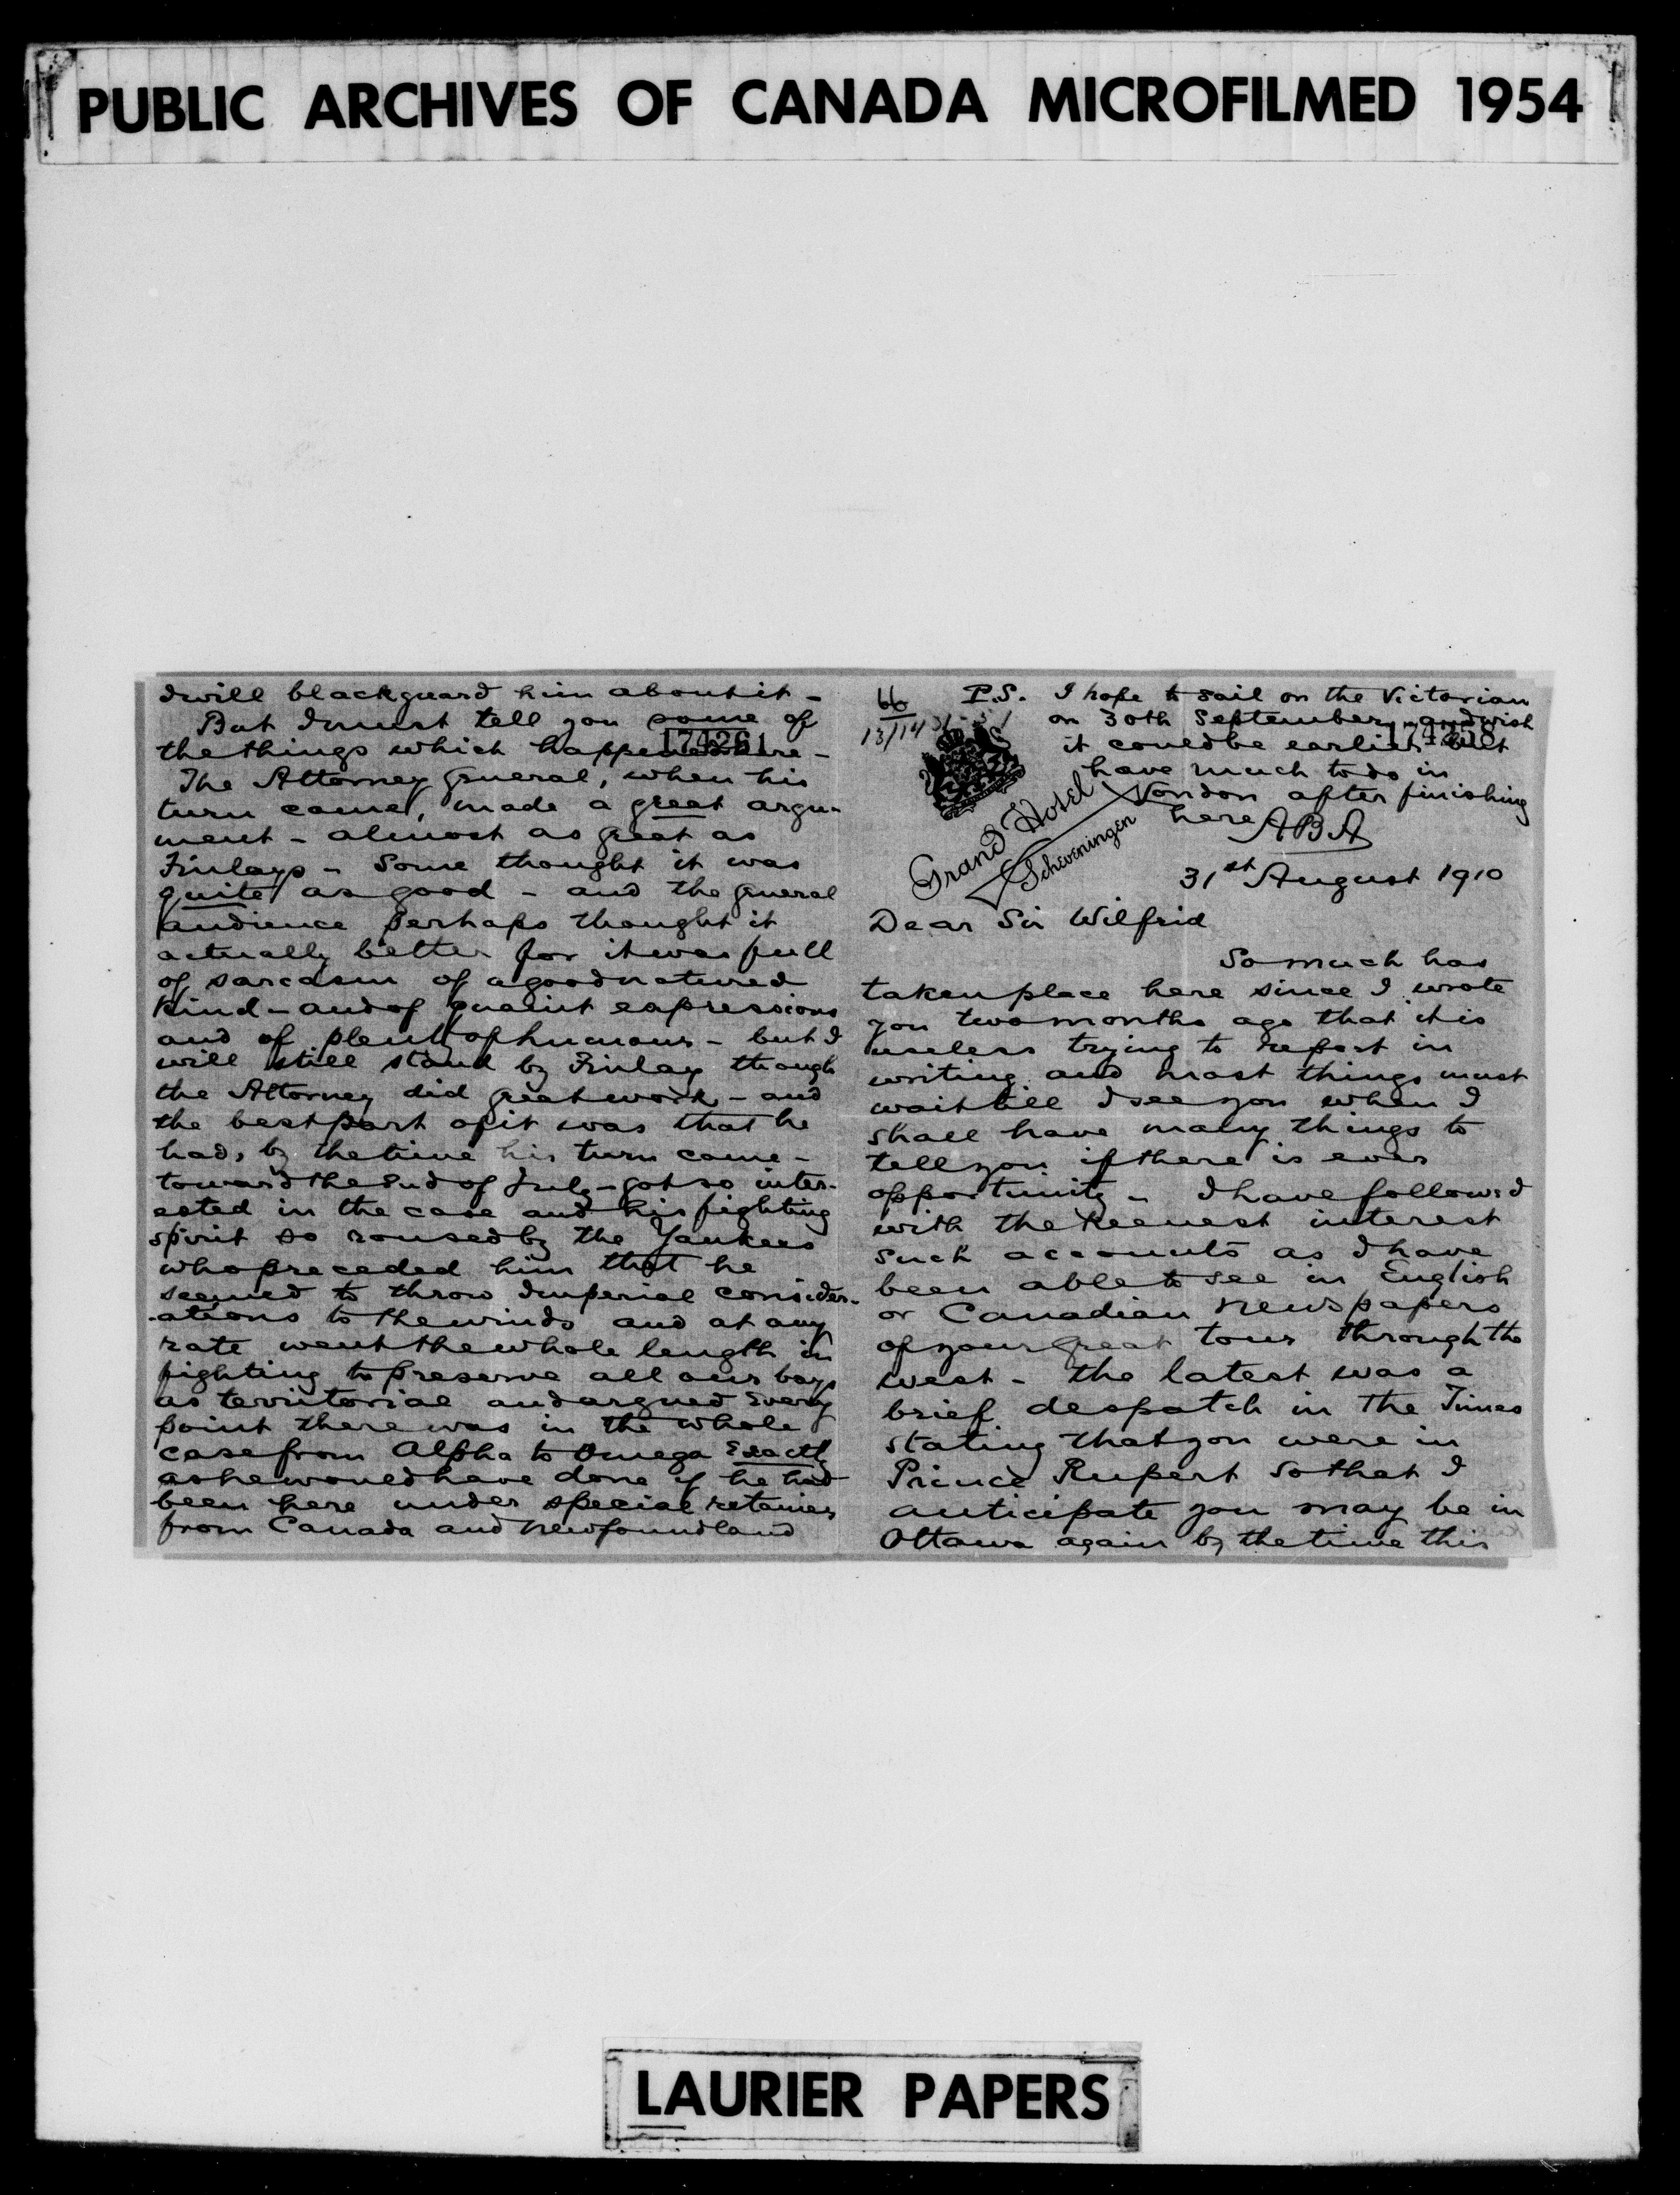 PUBLIC ARCHIVES OF CANADA MICROFILMED 1954
I will blackguard him about it -
But I must tell you some of
174261
the things which happened here -
The Attorney General, when his
turn came, made a great argu-
ment - almost as great as
Finlays - Some thought it was
quite as good - and the general
audience perhaps thought it
actually better for it was full
of sarcasm of a good natured
kind - and of quaint expressions
and of plenty of humour - but I
will still stand by Finlay though
the Attorney did great work - and
the best part of it was that he
had, by the time his turn came -
toward the end of July - got so inter-
ested in the case and his fighting
spirit so roused by the Yankees
who preceded him that he
seemed to throw Imperial consider-
-ations to the winds and at any
rate went the whole length in
fighting to preserve all our bays
as territorial and argued every
point there was in the whole
case from Alpha to Omega exactly
as he would have done if he had
been here under special retainer
from Canada and Newfoundland
66
13/14
P.S. I hope to sail on the Victorian
on 30th September and wish
174258
it could be earlier but
have much to do in
London after finishing
here ABA
Grand Hotel
Scheveningen
31st August 1910
Dear Sir Wilfrid
So much has
taken place here since I wrote
you two months ago that it is
useless trying to report in
writing and most things must
wait till I see you when I
shall have many things to
tell you if there is ever
opportunity - I have followed
with the keenest interest
such accounts as I have
been able to see in English
or Canadian newspapers
of your great tour through the
west - the latest was a
brief despatch in the Times
stating that you were in
Prince Rupert so that I
anticipate you may be in
Ottawa again by the time this
LAURIER PAPERS